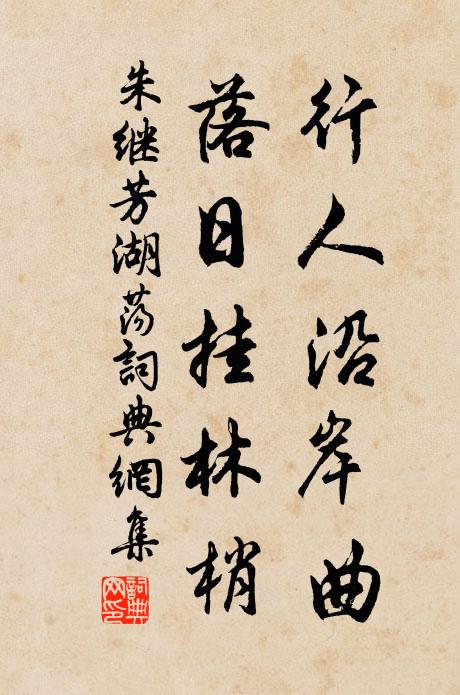 行人沿岸曲
落日挂林梢
朱继芳湖荡詞典網集
詞典網印